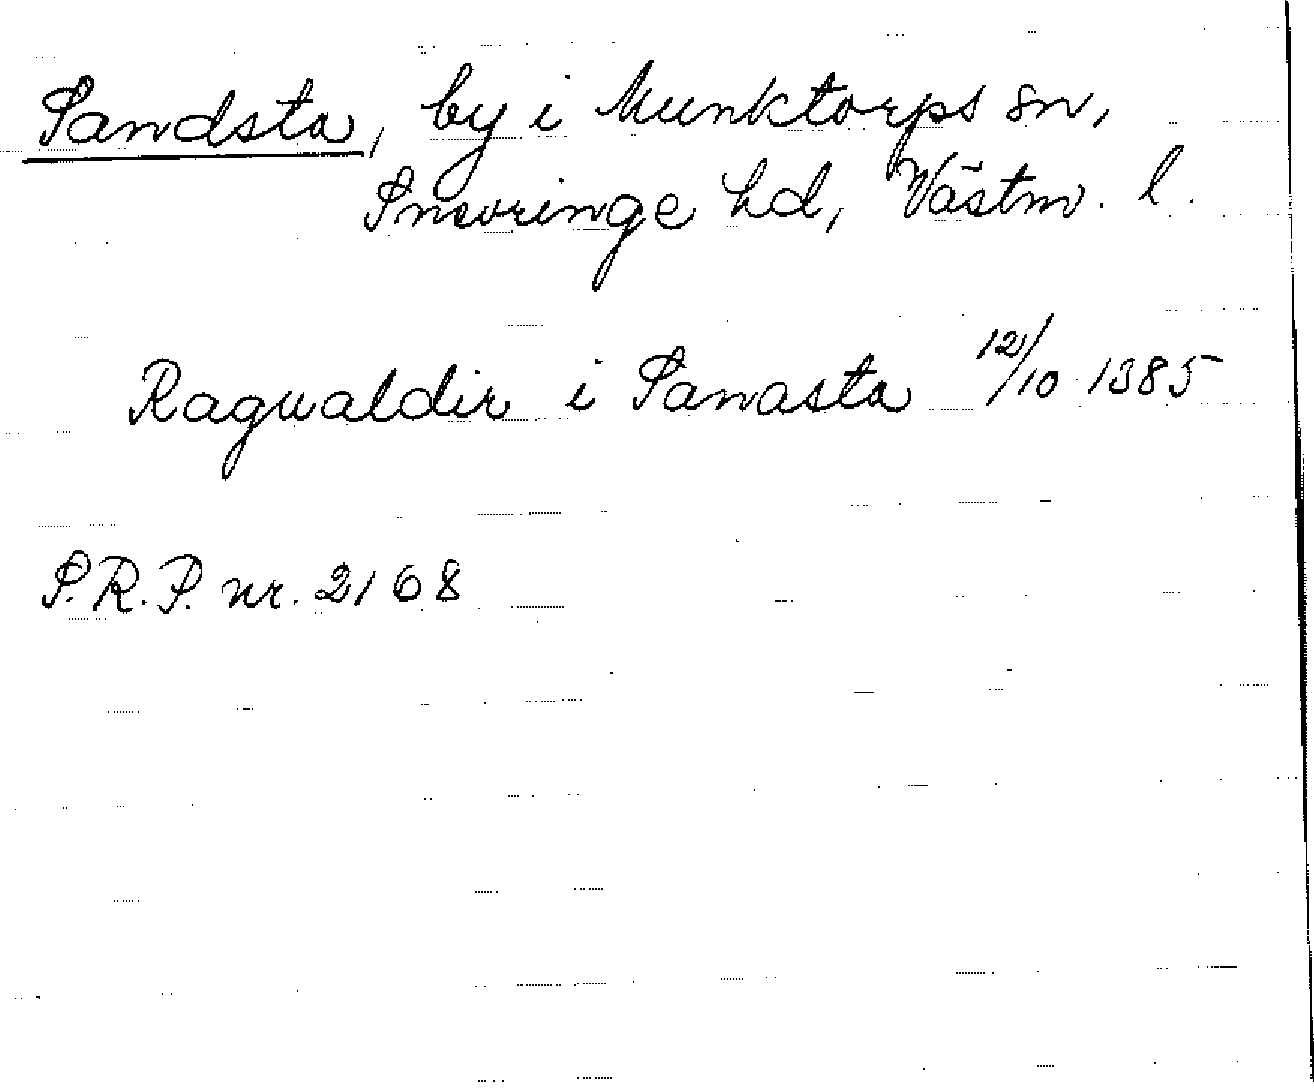 Sandsta, by i Munktorps sn,
Snevringe hd, Västm. l.
Ragualdir i Sanasta 12/10 1385
S.R.P. nr. 2168